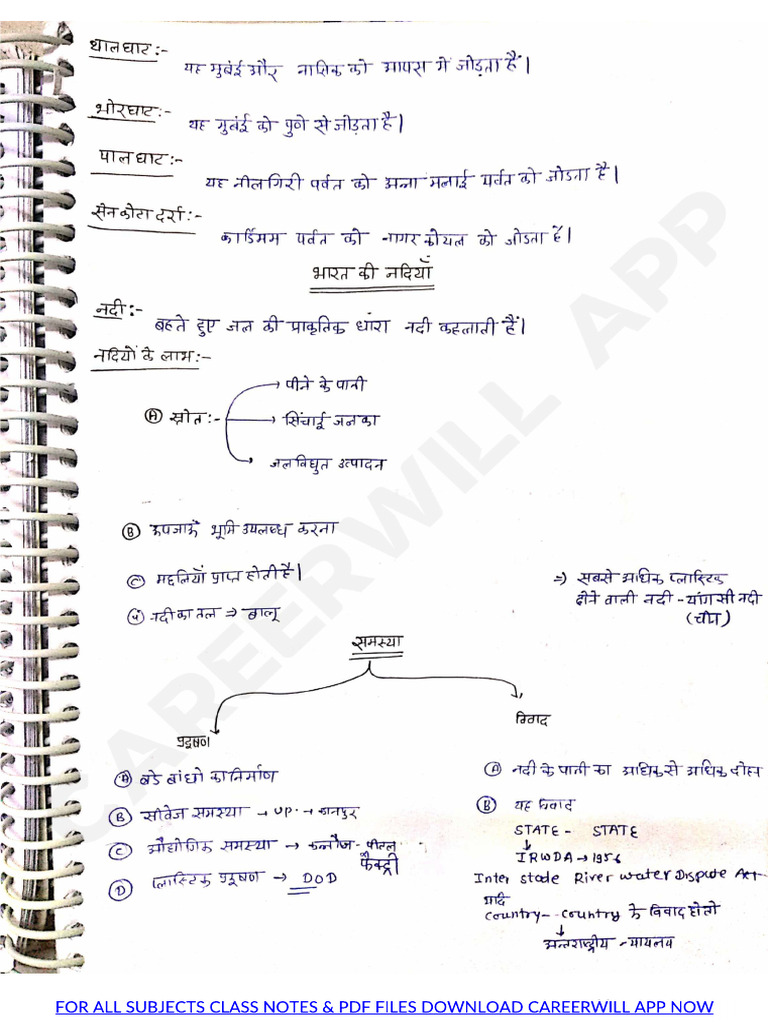 थालघाट:-
यह मुबंई और नासिक को आपस में जोड़ता है।
भोरघाट:-
यह मुबंई को पुणे से जोड़ता है।
पालघाट:-
यह नीलगिरी पर्वत को अन्ना मलाई पर्वत को जोडता है।
सेनकोटा दर्रा:-
कार्डिमम पर्वत को नागर कोयल को जोडता है।
भारत की नदियाँ
नदी:-
बहते हुए जल की प्राकृतिक धारा नदी कहलाती हैं।
नदियों के लाभ:-
पीने के पानी
Ⓐ स्रोत:-
सिंचाई जल का
जलविद्युत उत्पादन
Ⓑ उपजाऊँ भूमि उपलब्ध करना
Ⓒ मछलियाँ प्राप्त होती है।
⇒ सबसे अधिक प्लास्टिक
ढोने वाली नदी - यांगसी नदी
(चीन)
नदी का तल ⇒ बालू
समस्या
प्रदूषण
विवाद
Ⓐ बडे बांधो का निर्माण
Ⓑ सीवेज समस्या → UP. → कानपुर
Ⓒ औद्योगिक समस्या → कन्नौज - पीतल
फैक्ट्री
Ⓓ प्लास्टिक प्रदूषण → DOD
Ⓐ नदी के पानी का अधिक से अधिक दोहन
Ⓑ यह विवाद
STATE - STATE
↓
IRWDA → 1956
Inter stode River water Dispute Act
यदि
country - country के विवाद हो तो
↓
अन्तराष्ट्रीय न्यायलय
CAREERWILL APP
FOR ALL SUBJECTS CLASS NOTES & PDF FILES DOWNLOAD CAREERWILL APP NOW